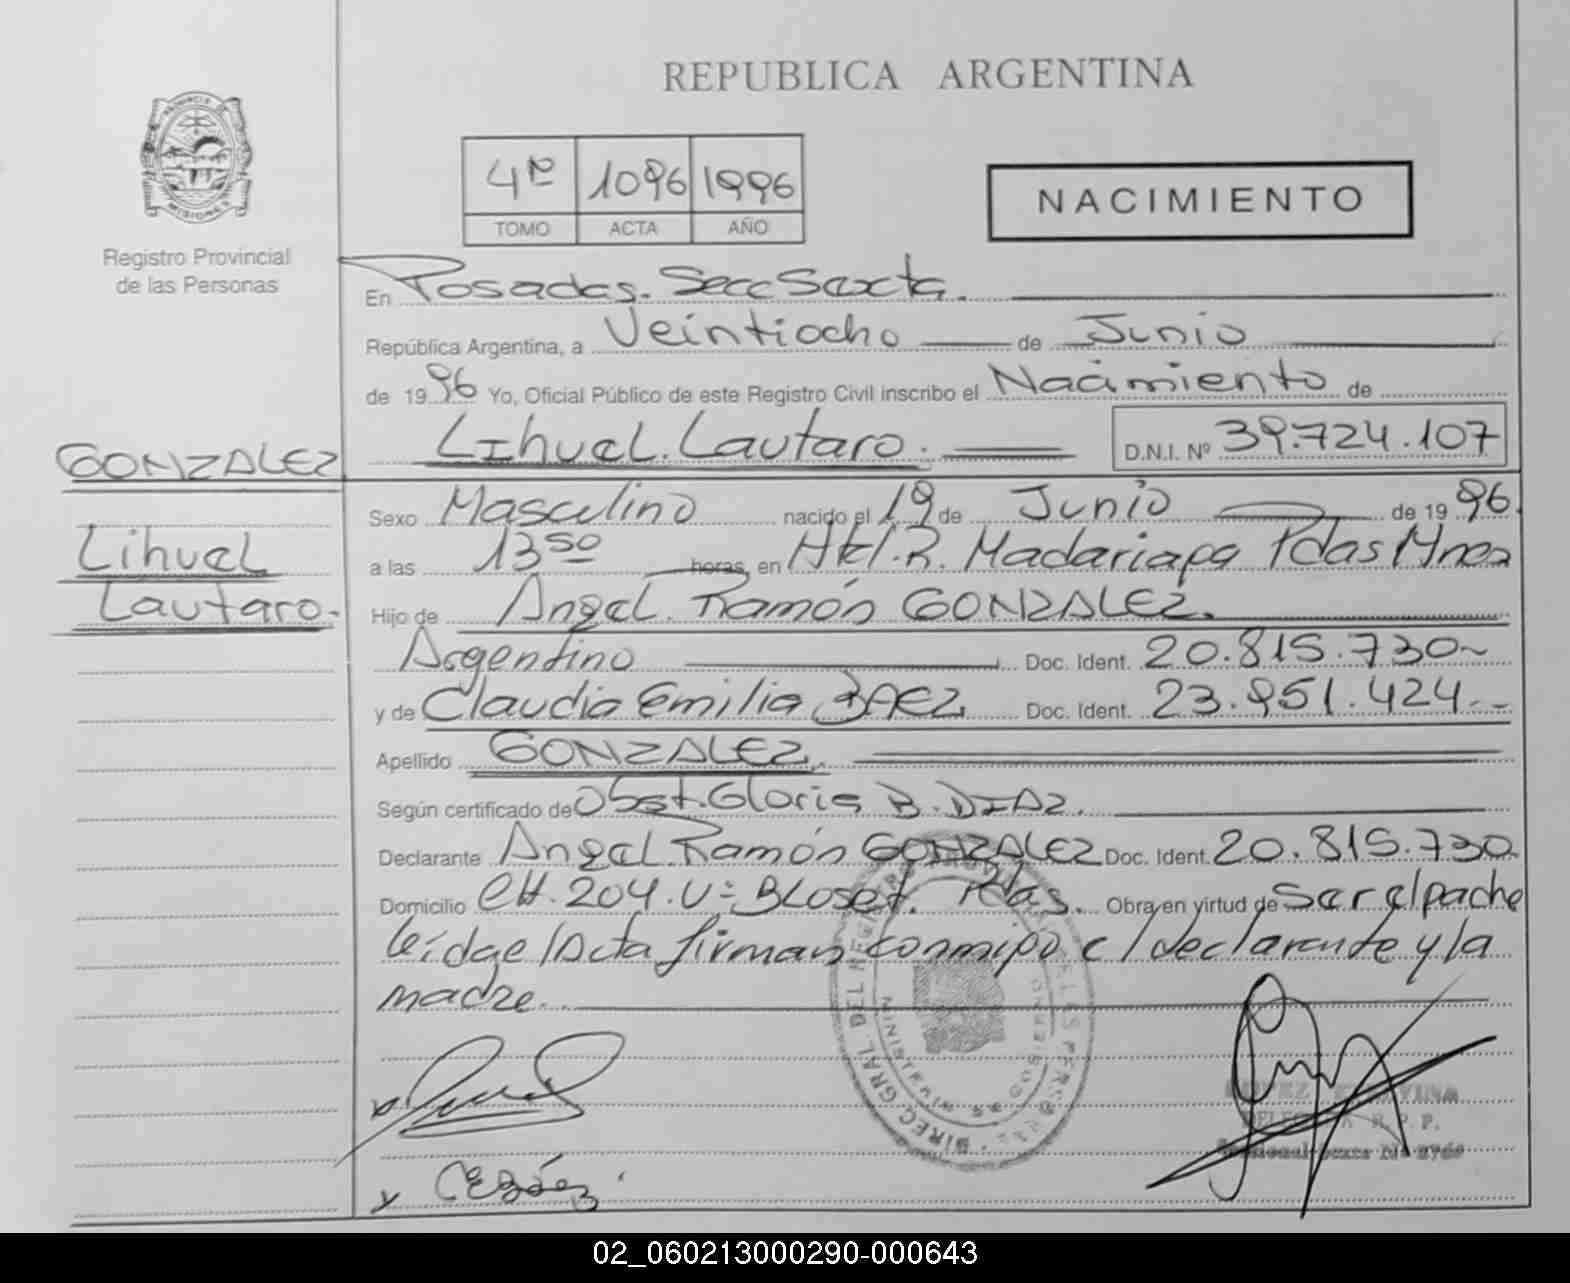 REPUBLICA ARGENTINA
PROVINCIA DE MISIONES
Registro Provincial
de las Personas
4º 1096 1996
TOMO ACTA AÑO
NACIMIENTO
En Posadas. Secc Sexta.
República Argentina, a Veintiocho de Junio
de 1996 Yo, Oficial Público de este Registro Civil inscribo el Nacimiento de
Lihuel. Lautaro. D.N.I. Nº 39.724.107
GONZALEZ
Lihuel
Lautaro.
Sexo Masculino nacido el 19 de Junio de 1996.
a las 13 50 horas, en Htl. R. Madariaga Pdas Mnes
Hijo de Angel. Ramón GONZALEZ.
Argentino Doc. Ident. 20.815.730
y de Claudia Emilia BAEZ Doc. Ident. 23.951.424.-
Apellido GONZALEZ.
Según certificado de Obst. Gloria B. DIAZ.
Declarante Angel. Ramón GONZALEZ Doc. Ident. 20.815.730
Domicilio CH. 204. Pdas. Obra en virtud de Ser el padre
leida el Acta firman conmigo el declarante y la
madre.
DIREC. GRAL. DEL REGISTRO
MINISTERIO DE GOBIERNO
R. P. P.
CEBáez
02_060213000290-000643